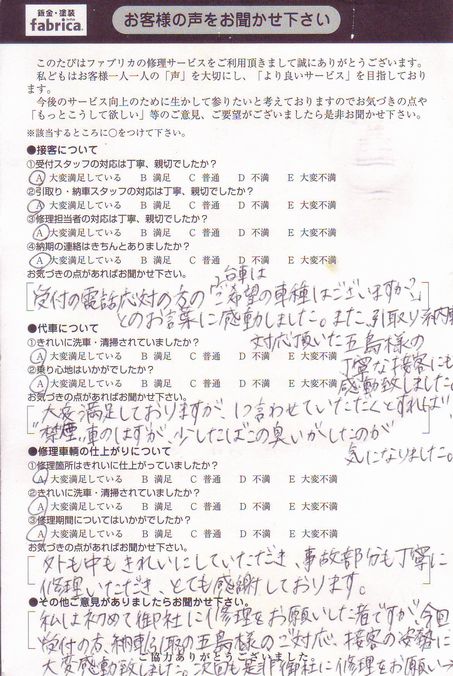 鈑金・塗装
fabrica
お客様の声をお聞かせ下さい
このたびはファブリカの修理サービスをご利用頂きまして誠にありがとうございます。
私どもはお客様一人一人の「声」を大切にし、「より良いサービス」を目指しており
ます。
今後のサービス向上のために生かして参りたいと考えておりますのでお気づきの点や
「もっとこうして欲しい」等のご意見、ご要望がございましたら是非お聞かせ下さい。
※該当するところに○をつけて下さい。
●接客について
①受付スタッフの対応は丁寧、親切でしたか?
A 大変満足している B 満足 C 普通 D 不満 E 大変不満
②引取り・納車スタッフの対応は丁寧、親切でしたか?
A 大変満足している B 満足 C 普通 D 不満 E 大変不満
③修理担当者の対応は丁寧、親切でしたか?
A 大変満足している B 満足 C 普通 D 不満 E 大変不満
④納期の連絡はきちんとありましたか?
A 大変満足している B 満足 C 普通 D 不満 E 大変不満
お気づきの点があればお聞かせ下さい。
受付の電話応対の方の「台車はご希望の車種はございますか?」
とのお言葉に感動しました。また、引取り
対応頂いた五島様の
丁寧な接客にも
感動致しました。
●代車について
①きれいに洗車・清掃されていましたか?
A 大変満足している B 満足 C 普通 D 不満 E 大変不満
②乗り心地はいかがでしたか?
A 大変満足している B 満足 C 普通 D 不満 E 大変不満
お気づきの点があればお聞かせ下さい。
大変満足しておりますが、1つ言わせていただくとすれば
"禁煙"車のはずが、少したばこの臭いがしたのが
気になりました。
●修理車輌の仕上がりについて
①修理箇所はきれいに仕上がっていましたか?
A 大変満足している B 満足 C 普通 D 不満 E 大変不満
②きれいに洗車・清掃されていましたか?
A 大変満足している B 満足 C 普通 D 不満 E 大変不満
③修理期間についてはいかがでしたか?
A 大変満足している B 満足 C 普通 D 不満 E 大変不満
お気づきの点があればお聞かせ下さい。
外も中もきれいにしていただき、事故部分も丁寧に
修理いただき、とても感謝しております。
●その他ご意見がありましたらお聞かせ下さい。
私は初めて御社に修理をお願いした者ですが、今回
受付の方、納車引取の五島様のご対応、接客の姿勢に
大変感動致しました。次回も是非御社に修理をお願いし
ご協力ありがとうございました